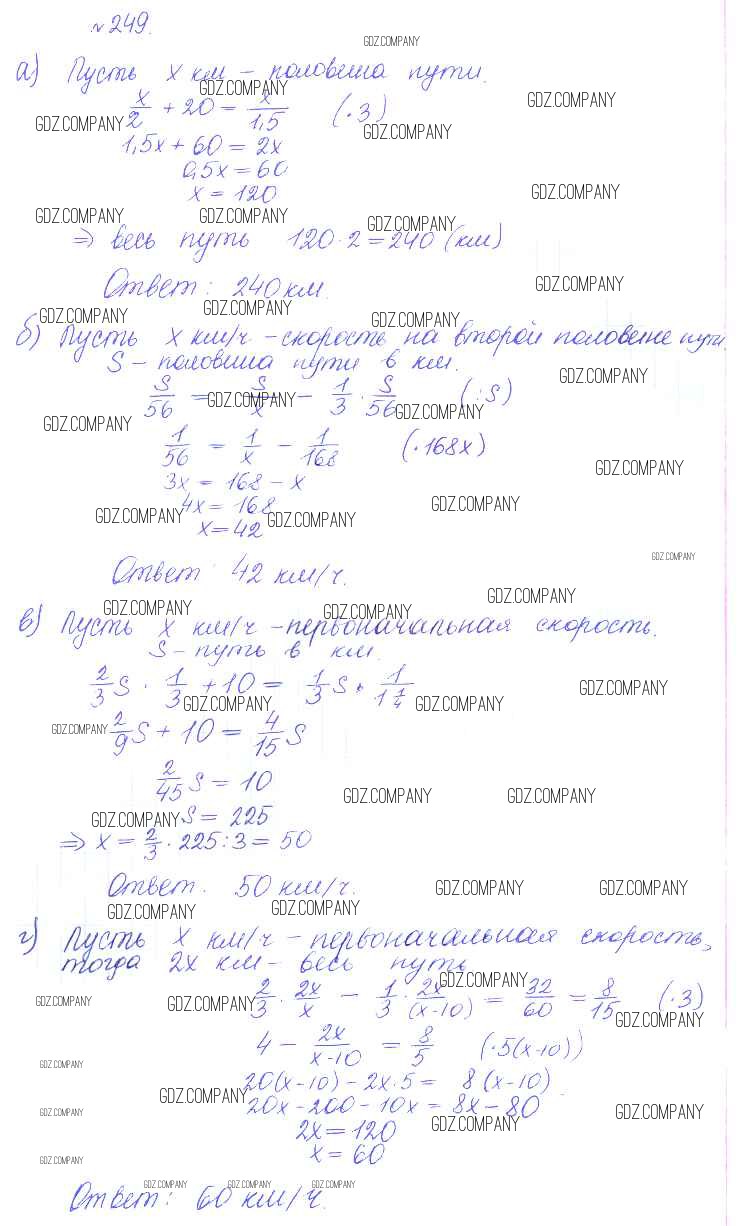 № 249.
GDZ.COMPANY
а) Пусть x км – половина пути.
GDZ.COMPANY
x/2 + 20 = x/1,5 (·3)
GDZ.COMPANY
GDZ.COMPANY
GDZ.COMPANY
1,5x + 60 = 2x
0,5x = 60
x = 120
GDZ.COMPANY
GDZ.COMPANY GDZ.COMPANY GDZ.COMPANY
⇒ весь путь 120·2 = 240 (км)
Ответ: 240 км.
GDZ.COMPANY
GDZ.COMPANY GDZ.COMPANY GDZ.COMPANY
б) Пусть x км/ч – скорость на второй половине пути.
S – половина пути в км.
GDZ.COMPANY
S/56 = S/x – 1/3 · S/56 (:S)
GDZ.COMPANY GDZ.COMPANY
GDZ.COMPANY
1/56 = 1/x – 1/168 (·168x)
GDZ.COMPANY
3x = 168 – x
4x = 168
GDZ.COMPANY
x = 42
GDZ.COMPANY GDZ.COMPANY
GDZ.COMPANY
Ответ: 42 км/ч.
GDZ.COMPANY
GDZ.COMPANY GDZ.COMPANY
в) Пусть x км/ч – первоначальная скорость.
S – путь в км.
2/3 S · 1/3 + 10 = 1/3 S · 1/1 1/4
GDZ.COMPANY
GDZ.COMPANY GDZ.COMPANY
GDZ.COMPANY
2/9 S + 10 = 4/15 S
2/45 S = 10
GDZ.COMPANY GDZ.COMPANY
GDZ.COMPANY
S = 225
⇒ x = 2/3 · 225 : 3 = 50
Ответ. 50 км/ч.
GDZ.COMPANY GDZ.COMPANY
GDZ.COMPANY GDZ.COMPANY
г) Пусть x км/ч – первоначальная скорость,
тогда 2x км – весь путь
GDZ.COMPANY
2/3 · 2x/x – 1/3 · 2x/(x-10) = 32/60 = 8/15 (·3)
GDZ.COMPANY GDZ.COMPANY GDZ.COMPANY
4 – 2x/x-10 = 8/5 (·5(x-10))
GDZ.COMPANY
20(x-10) – 2x·5 = 8(x-10)
GDZ.COMPANY
20x – 200 – 10x = 8x – 80
GDZ.COMPANY GDZ.COMPANY GDZ.COMPANY
2x = 120
x = 60
GDZ.COMPANY
GDZ.COMPANY GDZ.COMPANY GDZ.COMPANY
Ответ: 60 км/ч.